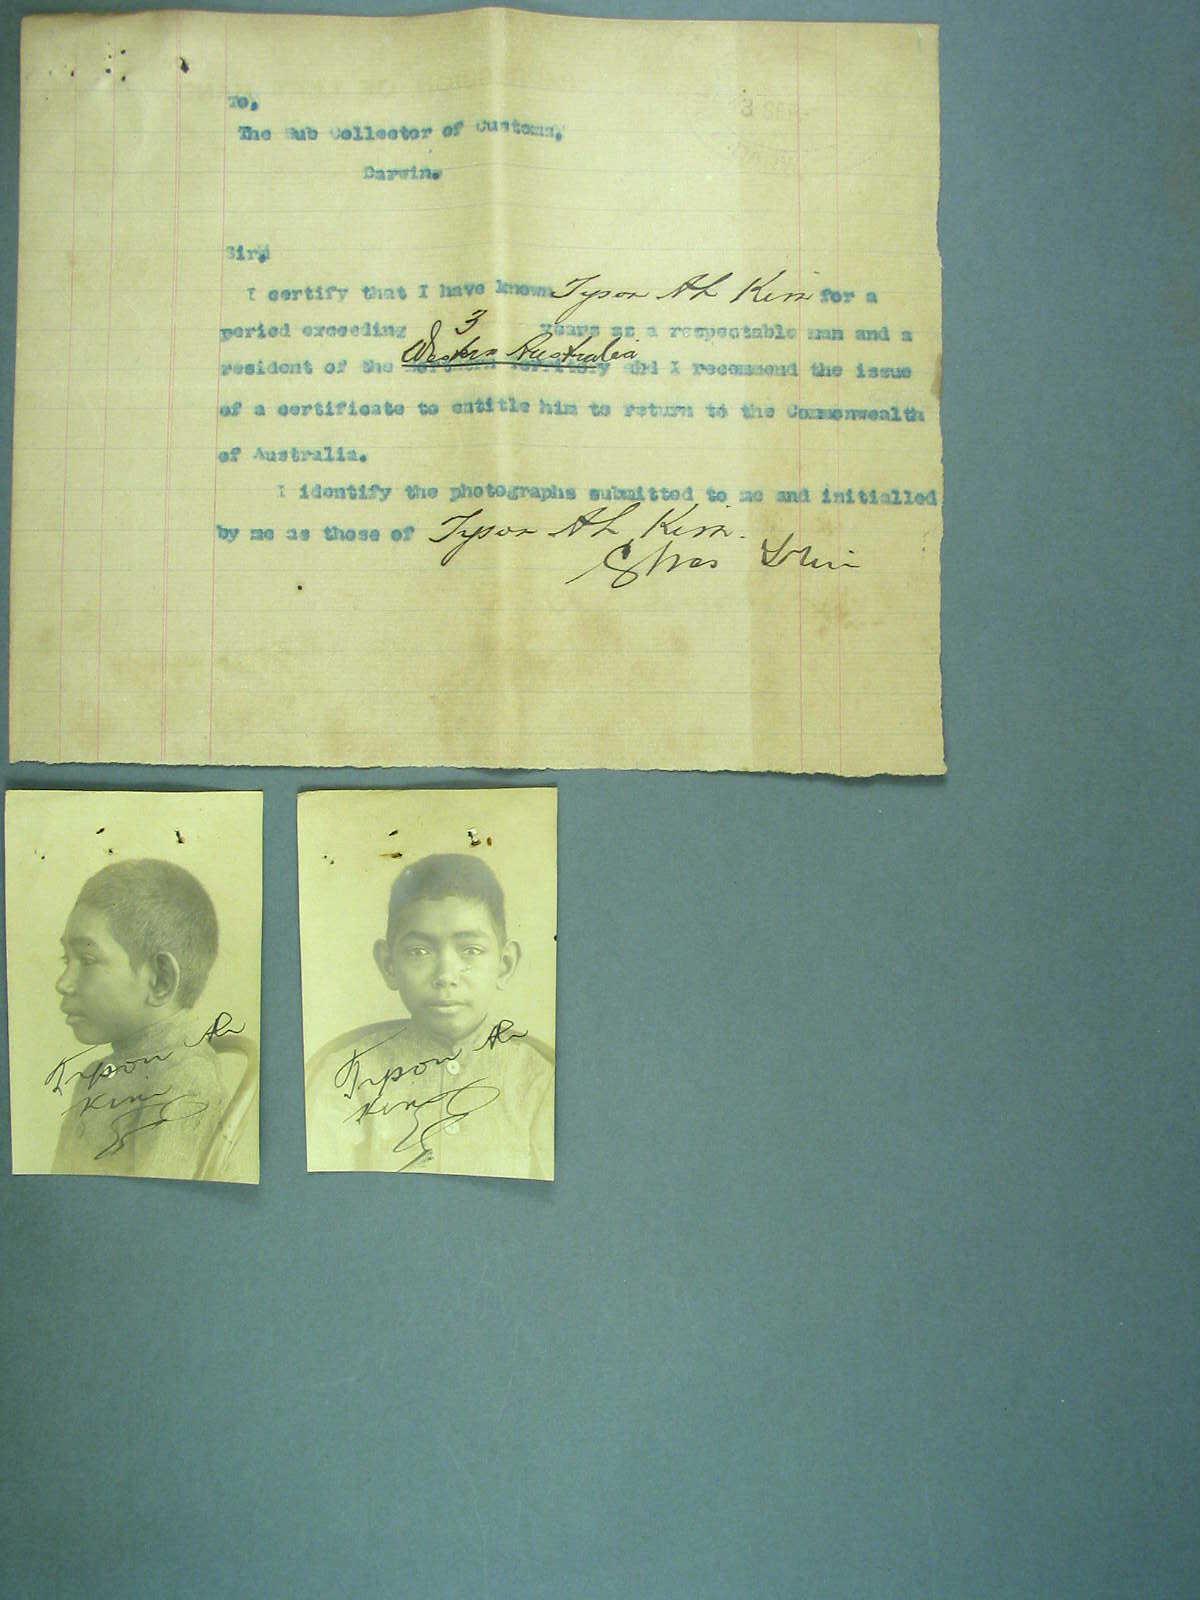 3 SEP
To,
The Sub Collector of Customs,
Darwin.
Sir,
I certify that I have known Tyson Ah Kim for a
period exceeding 3 years as a respectable man and a
Western Australia
resident of the Northern Territory and I recommend the issue
of a certificate to entitle him to return to the Commonwealth
of Australia.
I identify the photographs submitted to me and initialled
by me as those of Tyson Ah Kim.
Chas
Tyson Ah
Kim
Tyson Ah
Kim